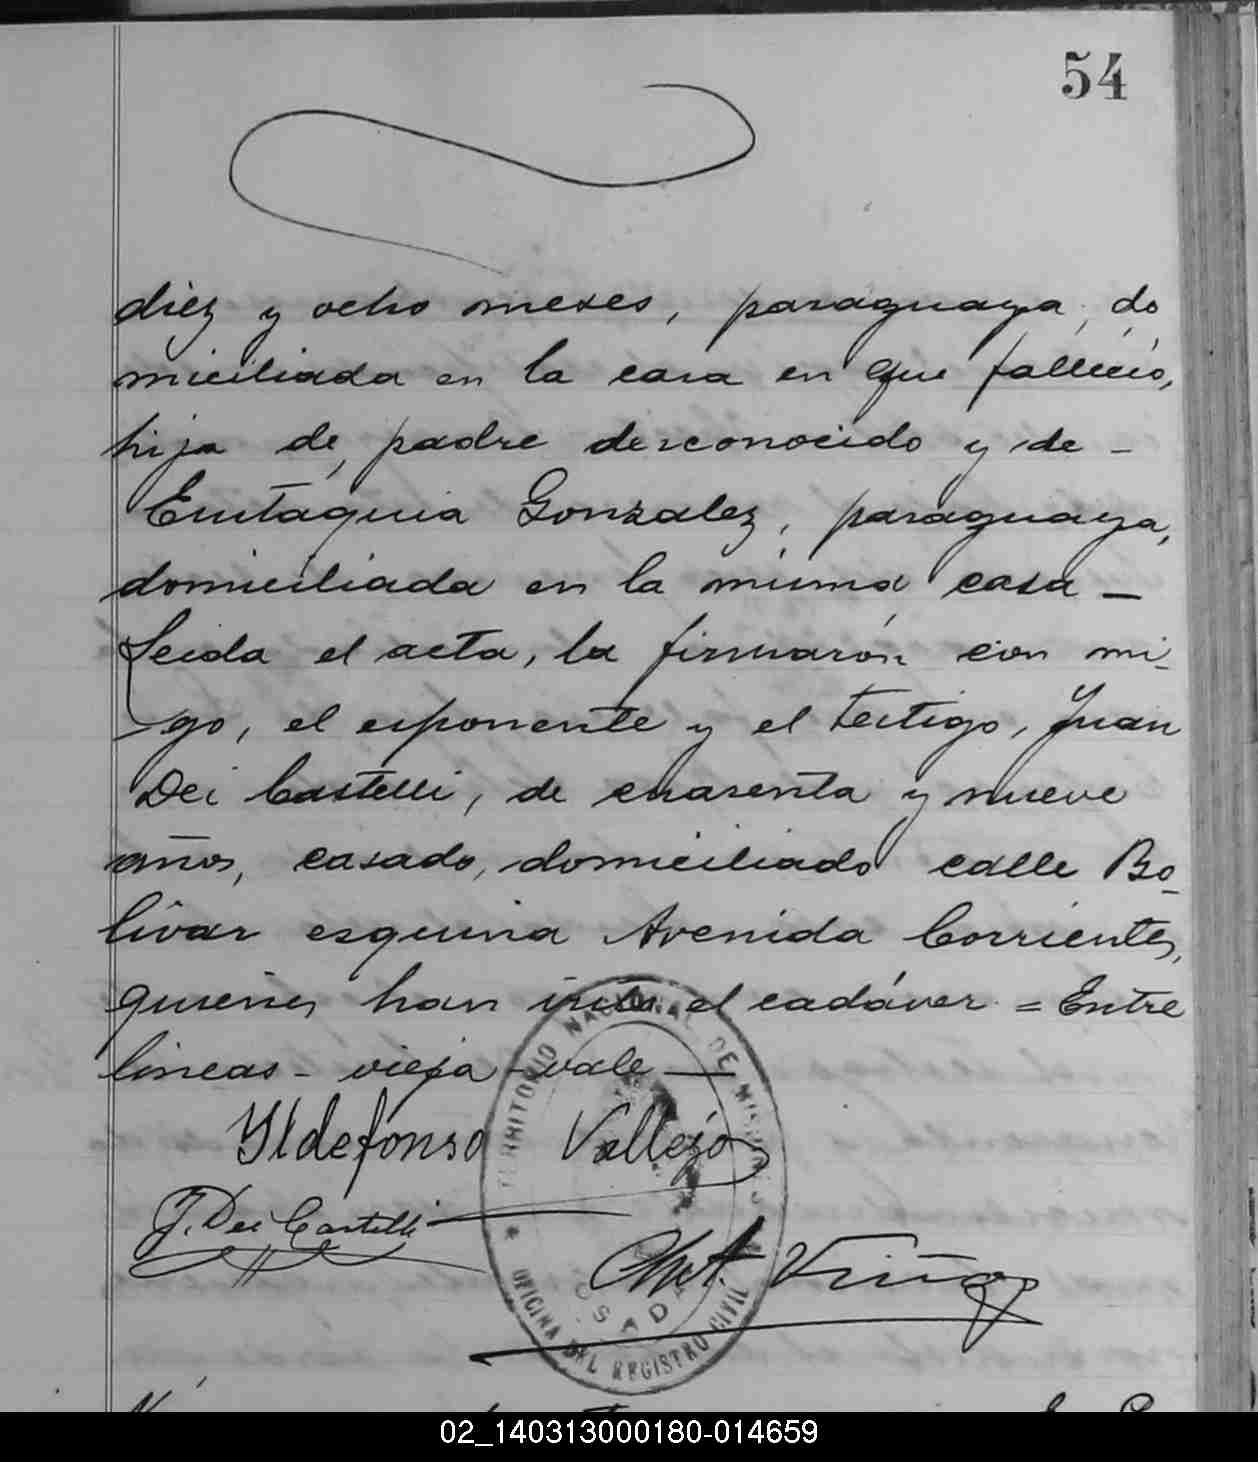 54
diez y ocho meses, paraguaya, do
miciliada en la casa en que falleció,
hija de padre desconocido y de -
Eustaquia Gonzalez, paraguaya,
domiciliada en la misma casa -
Leida el acta, la firmarón con mi-
go, el esponente y el testigo, Juan
Dei Castelli, de cuarenta y nueve
años, casado, domiciliado calle Bo-
livar esquina Avenida Corrientes,
quienes han visto el cadáver = Entre
lineas - vieja - vale -
Yldefonso Vallejo
J. Dei Castelli
Viña
TERRITORIO NACIONAL DE MISIONES
POSADAS
OFICINA DEL REGISTRO CIVIL
02_140313000180-014659